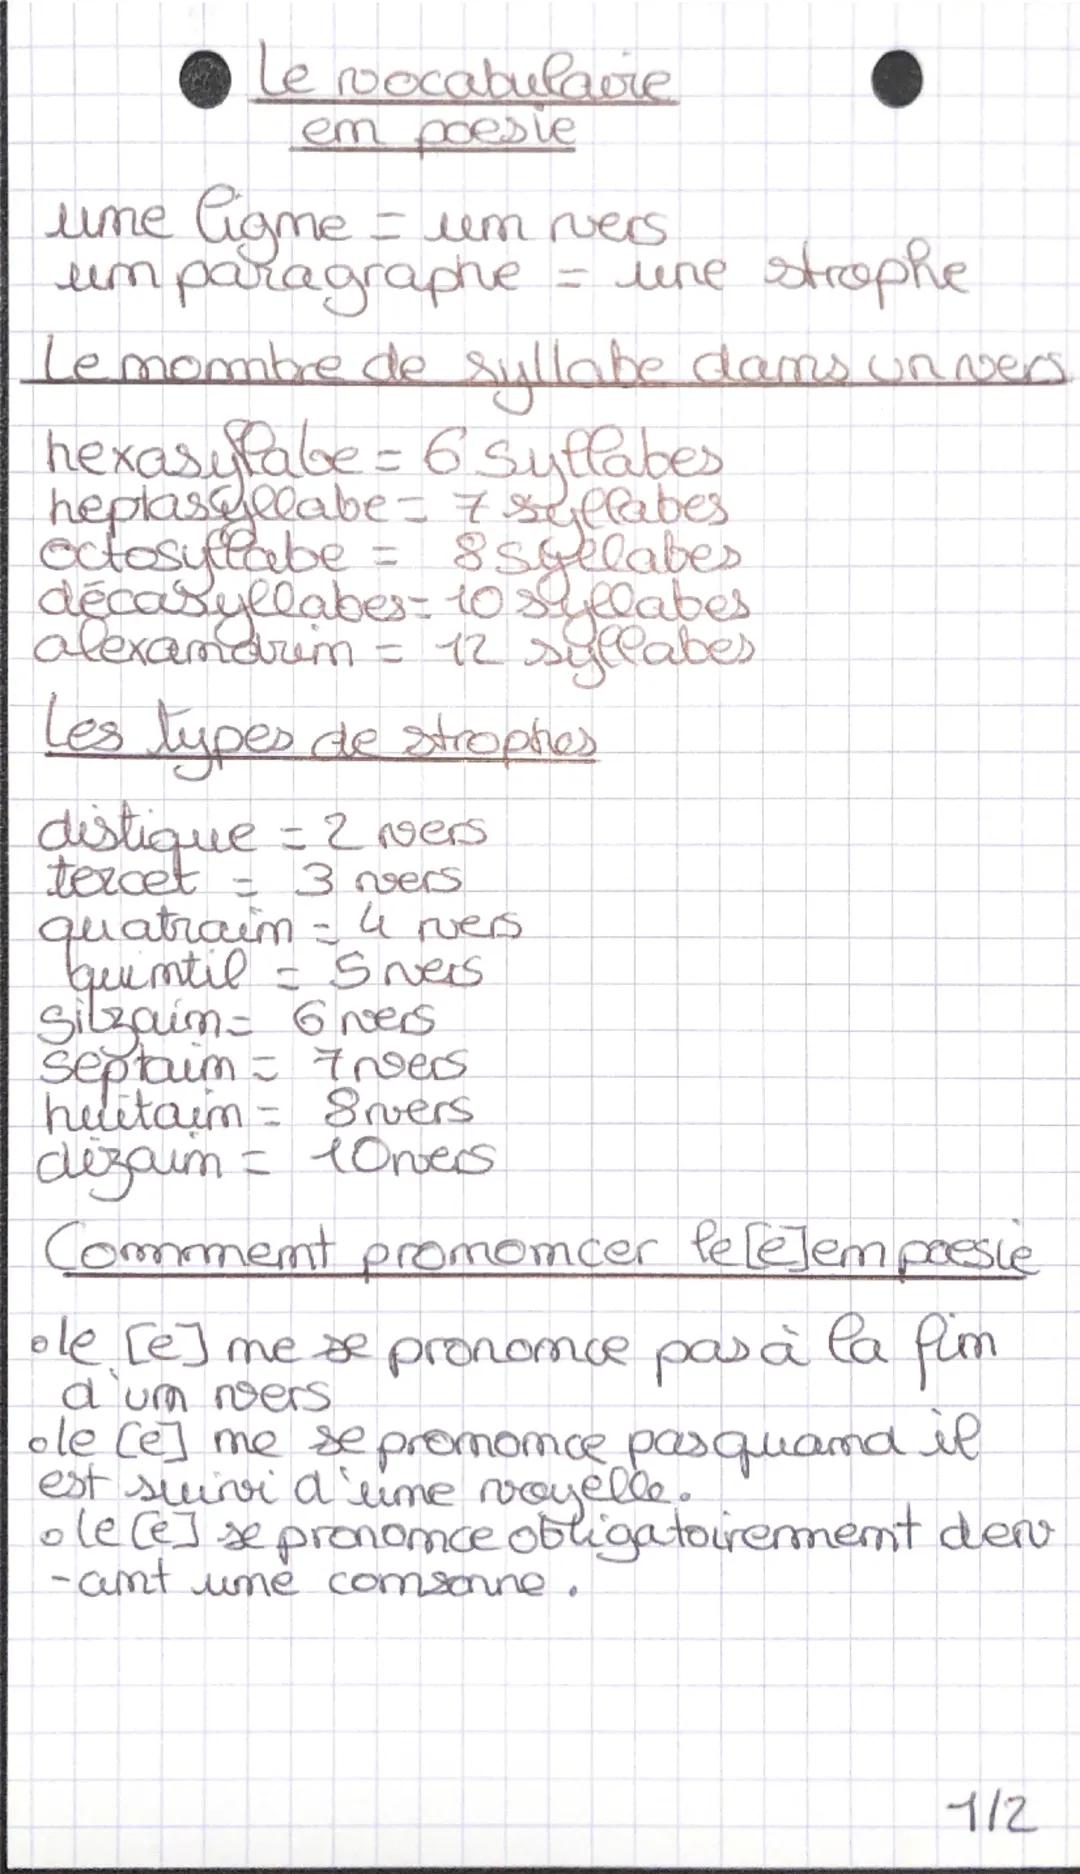 Le vocabulaire
en poesie
une ligne = un vers
un paragraphe = une strophe
Le nombre de syllabe dans un vers
hexasyllabe = 6 syllabes
heptasyllabe = 7 syllabes
octosyllabe = 8 syllabes
décasyllabes = 10 syllabes
alexandrin = 12 syllabes
Les types de strophes
distique = 2 vers
tercet = 3 vers
quatrain = 4 vers
quintil = 5 vers
sizain = 6 vers
septain = 7 vers
huitain = 8 vers
dizain = 10 vers
Comment prononcer le [e] en poesie
• le [e] ne se prononce pas à la fin
d'un vers
• le [e] ne se prononce pas quand il
est suivi d'une voyelle.
• le [e] se prononce obligatoirement dev
-ant une consonne.
1/2